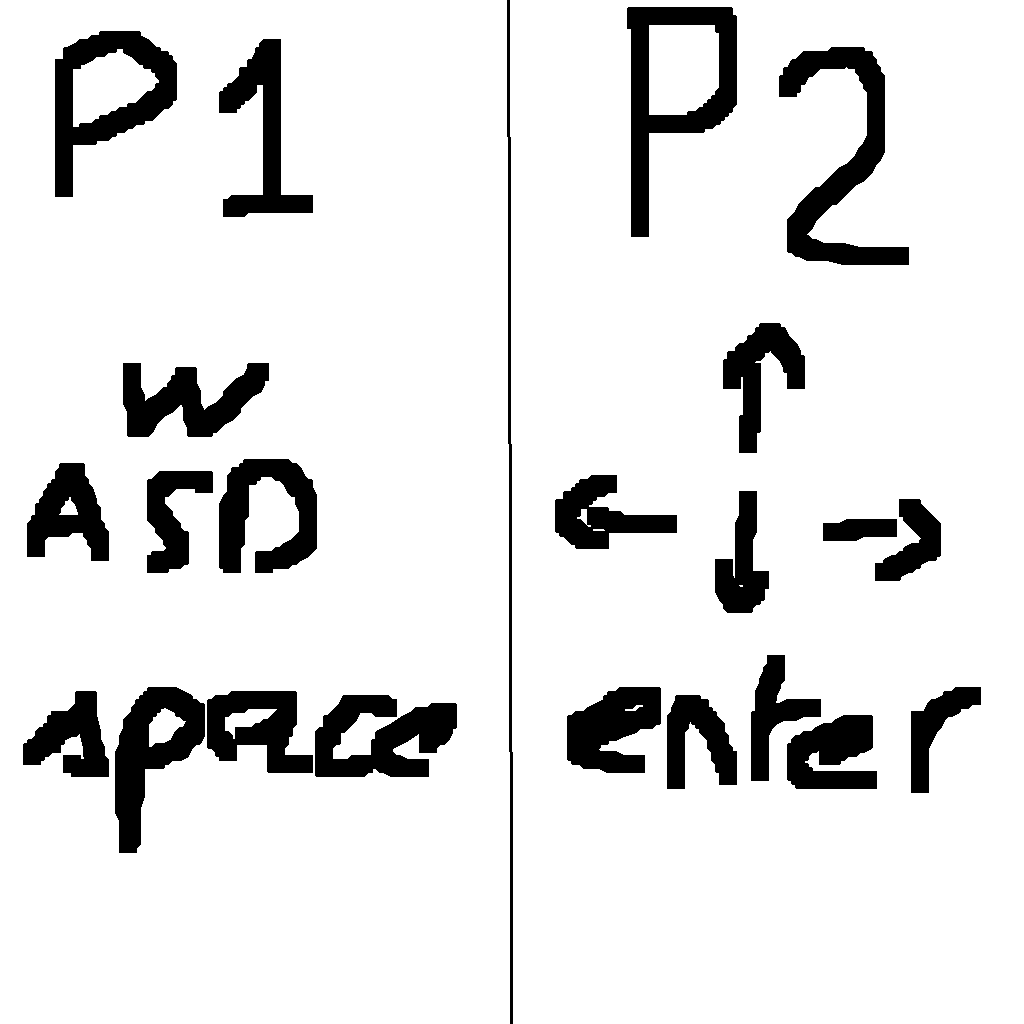 P1
W
ASD
space
P2
↑
← ↓ →
enter